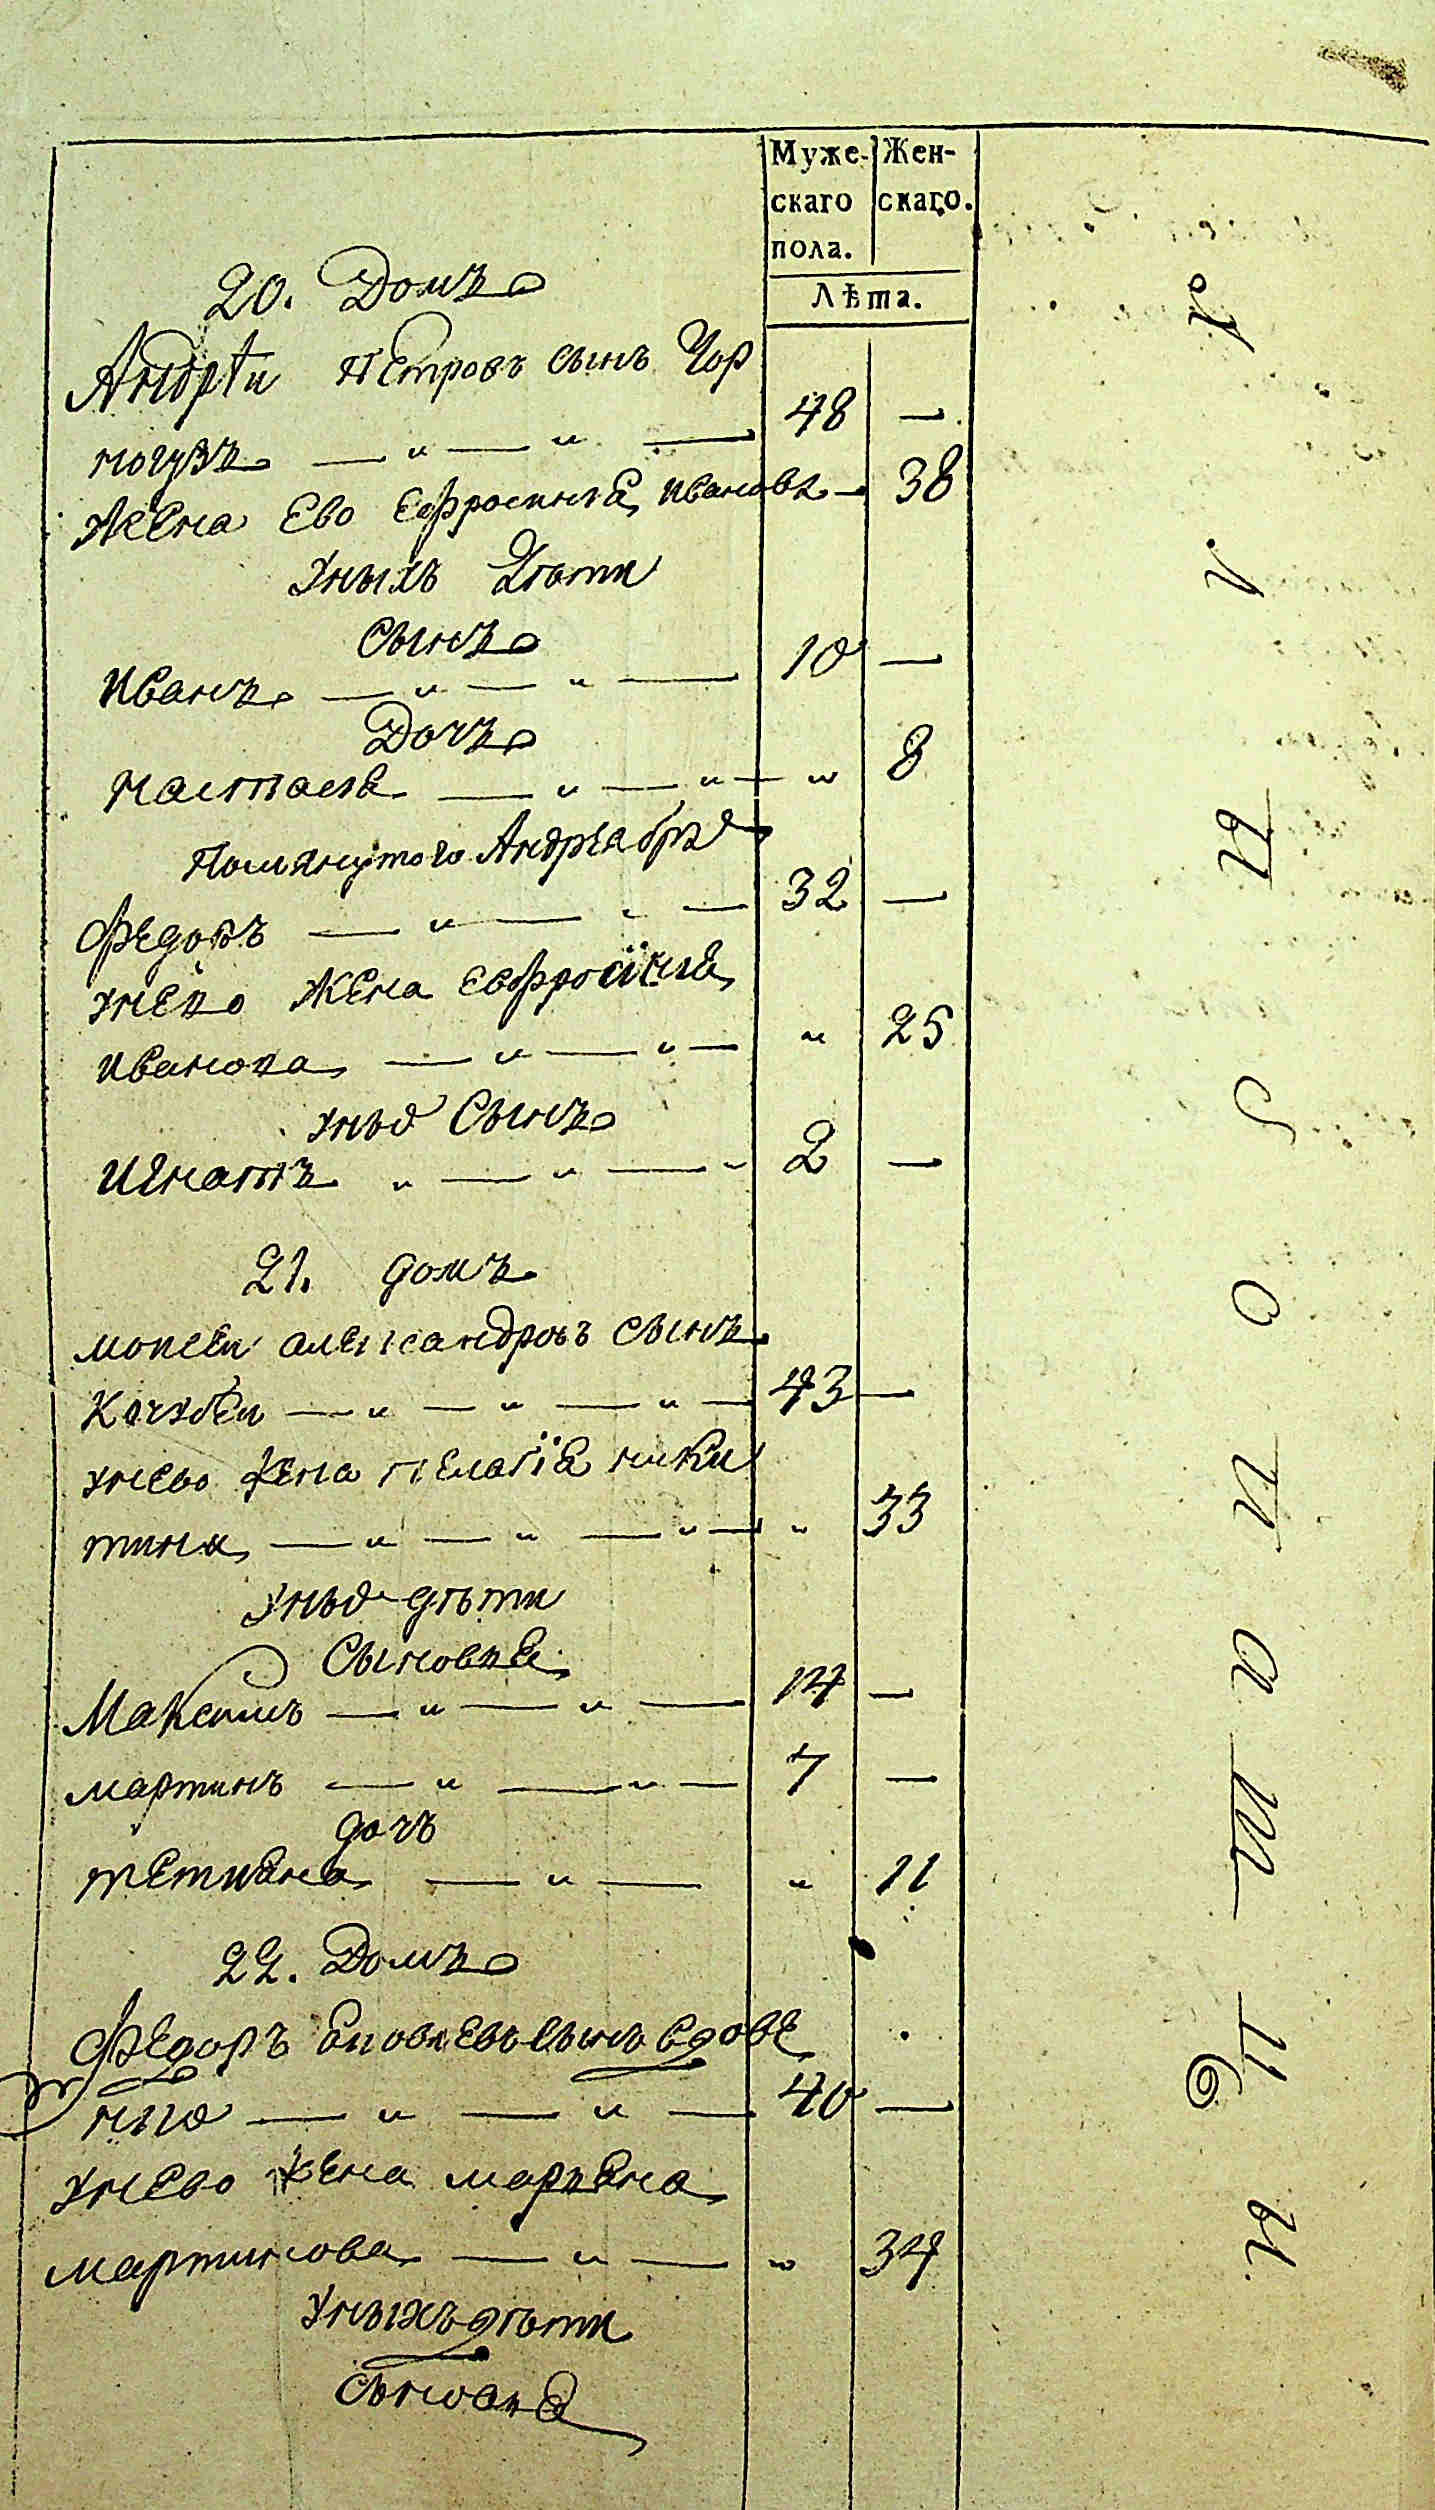 Муже- Жен-
скаго скаго.
пола.
Лѣта.
20. Домъ
Андрѣи Петровъ сынъ Чор
ногузъ — „ — „ — 48 —
Жена Ево Ефросинія Ивановъ — 38
Уныхъ Дѣти
Сынъ
Иванъ — „ — „ — 10 —
Дочъ
Настасія — „ — „ — „ 8
Помянутого Андрѣа бра
Федоръ — „ — „ — 32 —
унево Жена Евфросїнія
Иванова — „ — „ — „ 25
Сынъ
Игнатъ „ — „ — „ 2 —
21. домъ
моисеи александровъ сынъ
Кочубеи — „ — „ — „ — 43 —
унево жена пелагїа ники
тина — „ — „ — „ — „ 33
дѣти
Сыновья
Максимъ — „ — „ — 14 —
мартинъ — „ — „ — 7 —
дочъ
тетиана — „ — „ 11
22. Домъ
Федоръ сынъ вдове
— „ — „ — 40 —
унево жена маряна
мартинова — „ — „ 34
Уныхъ дѣти
сыновья